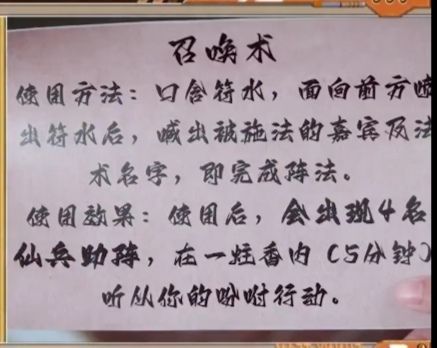 召唤术
使用方法：口含符水，面向前方喷
出符水后，喊出被施法的嘉宾及法
术名字，即完成阵法。
使用效果：使用后，会出现4名
仙兵助阵，在一炷香内（5分钟）
听从你的吩咐行动。